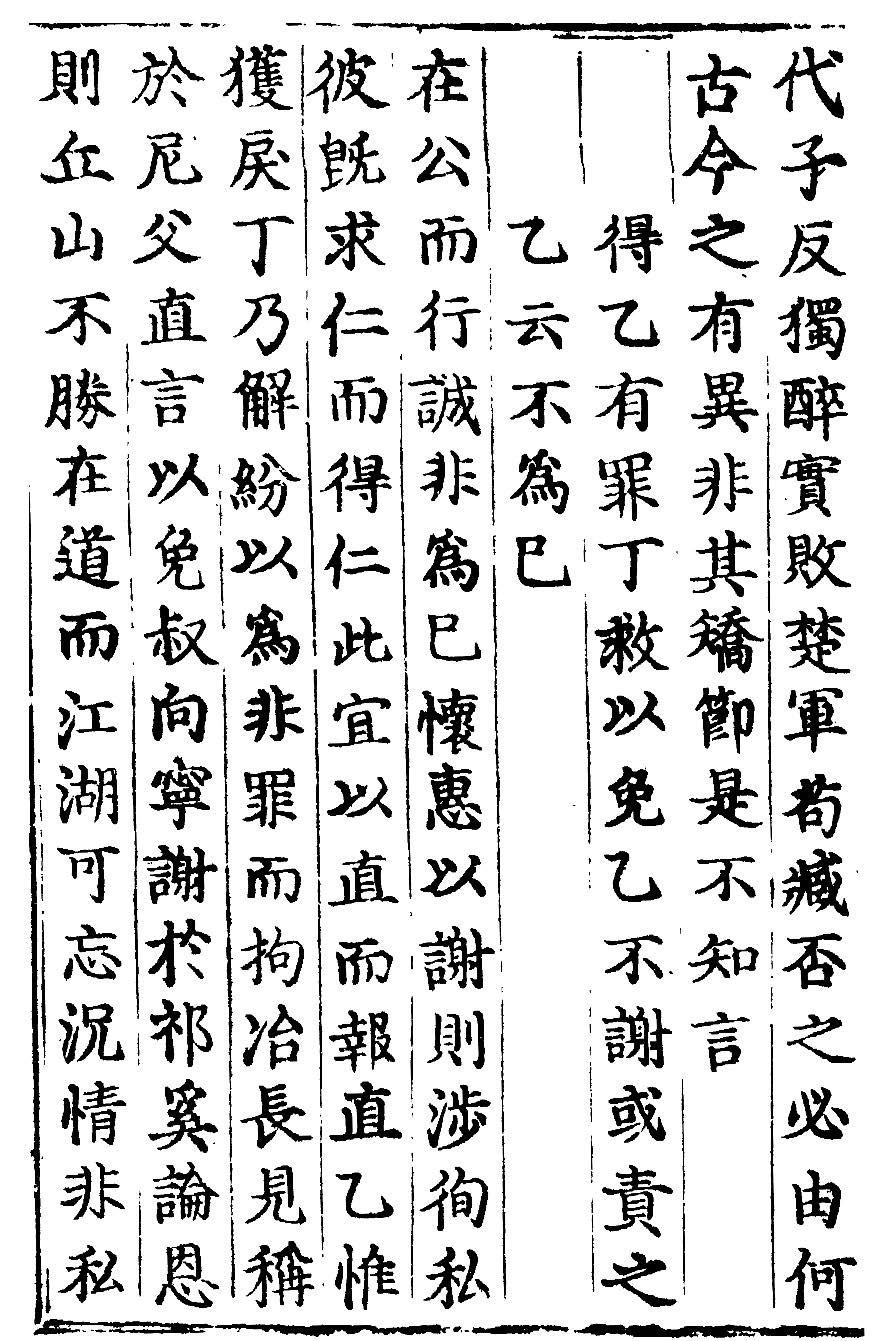 代子反獨醉實敗楚軍苟臧否之必由何
古今之有異非其矯節是不知言
得乙有罪丁救以免乙不謝或責之
乙云不為已
在公而行誠非為已懷惠以謝則涉徇私
彼旣求仁而得仁此宜以直而報直乙惟
獲戾丁乃解紛以為非罪而拘冶長見稱
於尼父直言以免叔向寧謝於祁奚論恩
則丘山不勝在道而江湖可忘況情非私